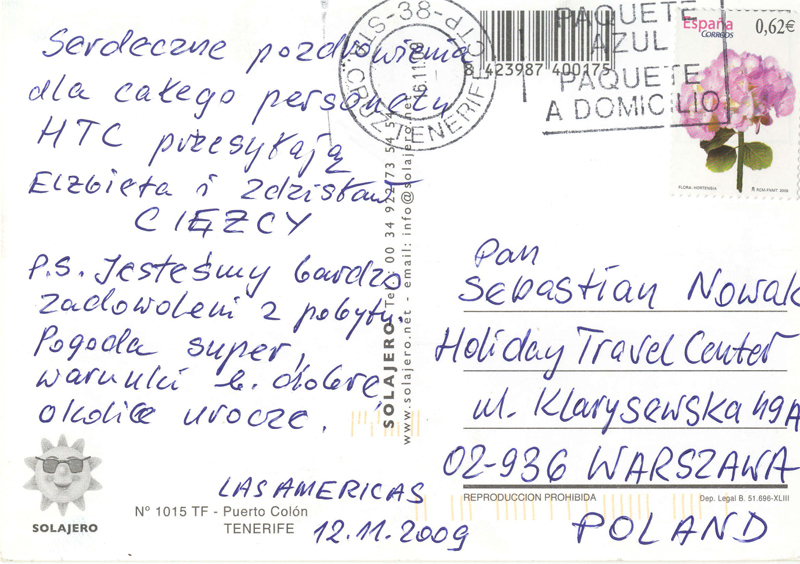 Serdeczne pozdrowienia
dla całego personelu
HTC przesyłają
Elżbieta i Zdzisław
CIĘŻCY
P.S. Jesteśmy bardzo
zadowoleni z pobytu.
Pogoda super,
warunki b. dobre,
okolice urocze.
LAS AMERICAS
12.11.2009
SOLAJERO
Nº 1015 TF - Puerto Colón
TENERIFE
SOLAJERO Tel. 00 34 922 73 54 54
www.solajero.net - email: info@solajero.net
8 423987 400175
CTP-38-STA.CRUZ TENERIFE
PAQUETE
AZUL
PAQUETE
A DOMICILIO
España
CORREOS
0,62€
FLORA - HORTENSIA
Pan
Sebastian Nowak
Holiday Travel Center
ul. Klarysewska 49A
02-936 WARSZAWA
REPRODUCCION PROHIBIDA
Dep. Legal B. 51.696-XLIII
POLAND